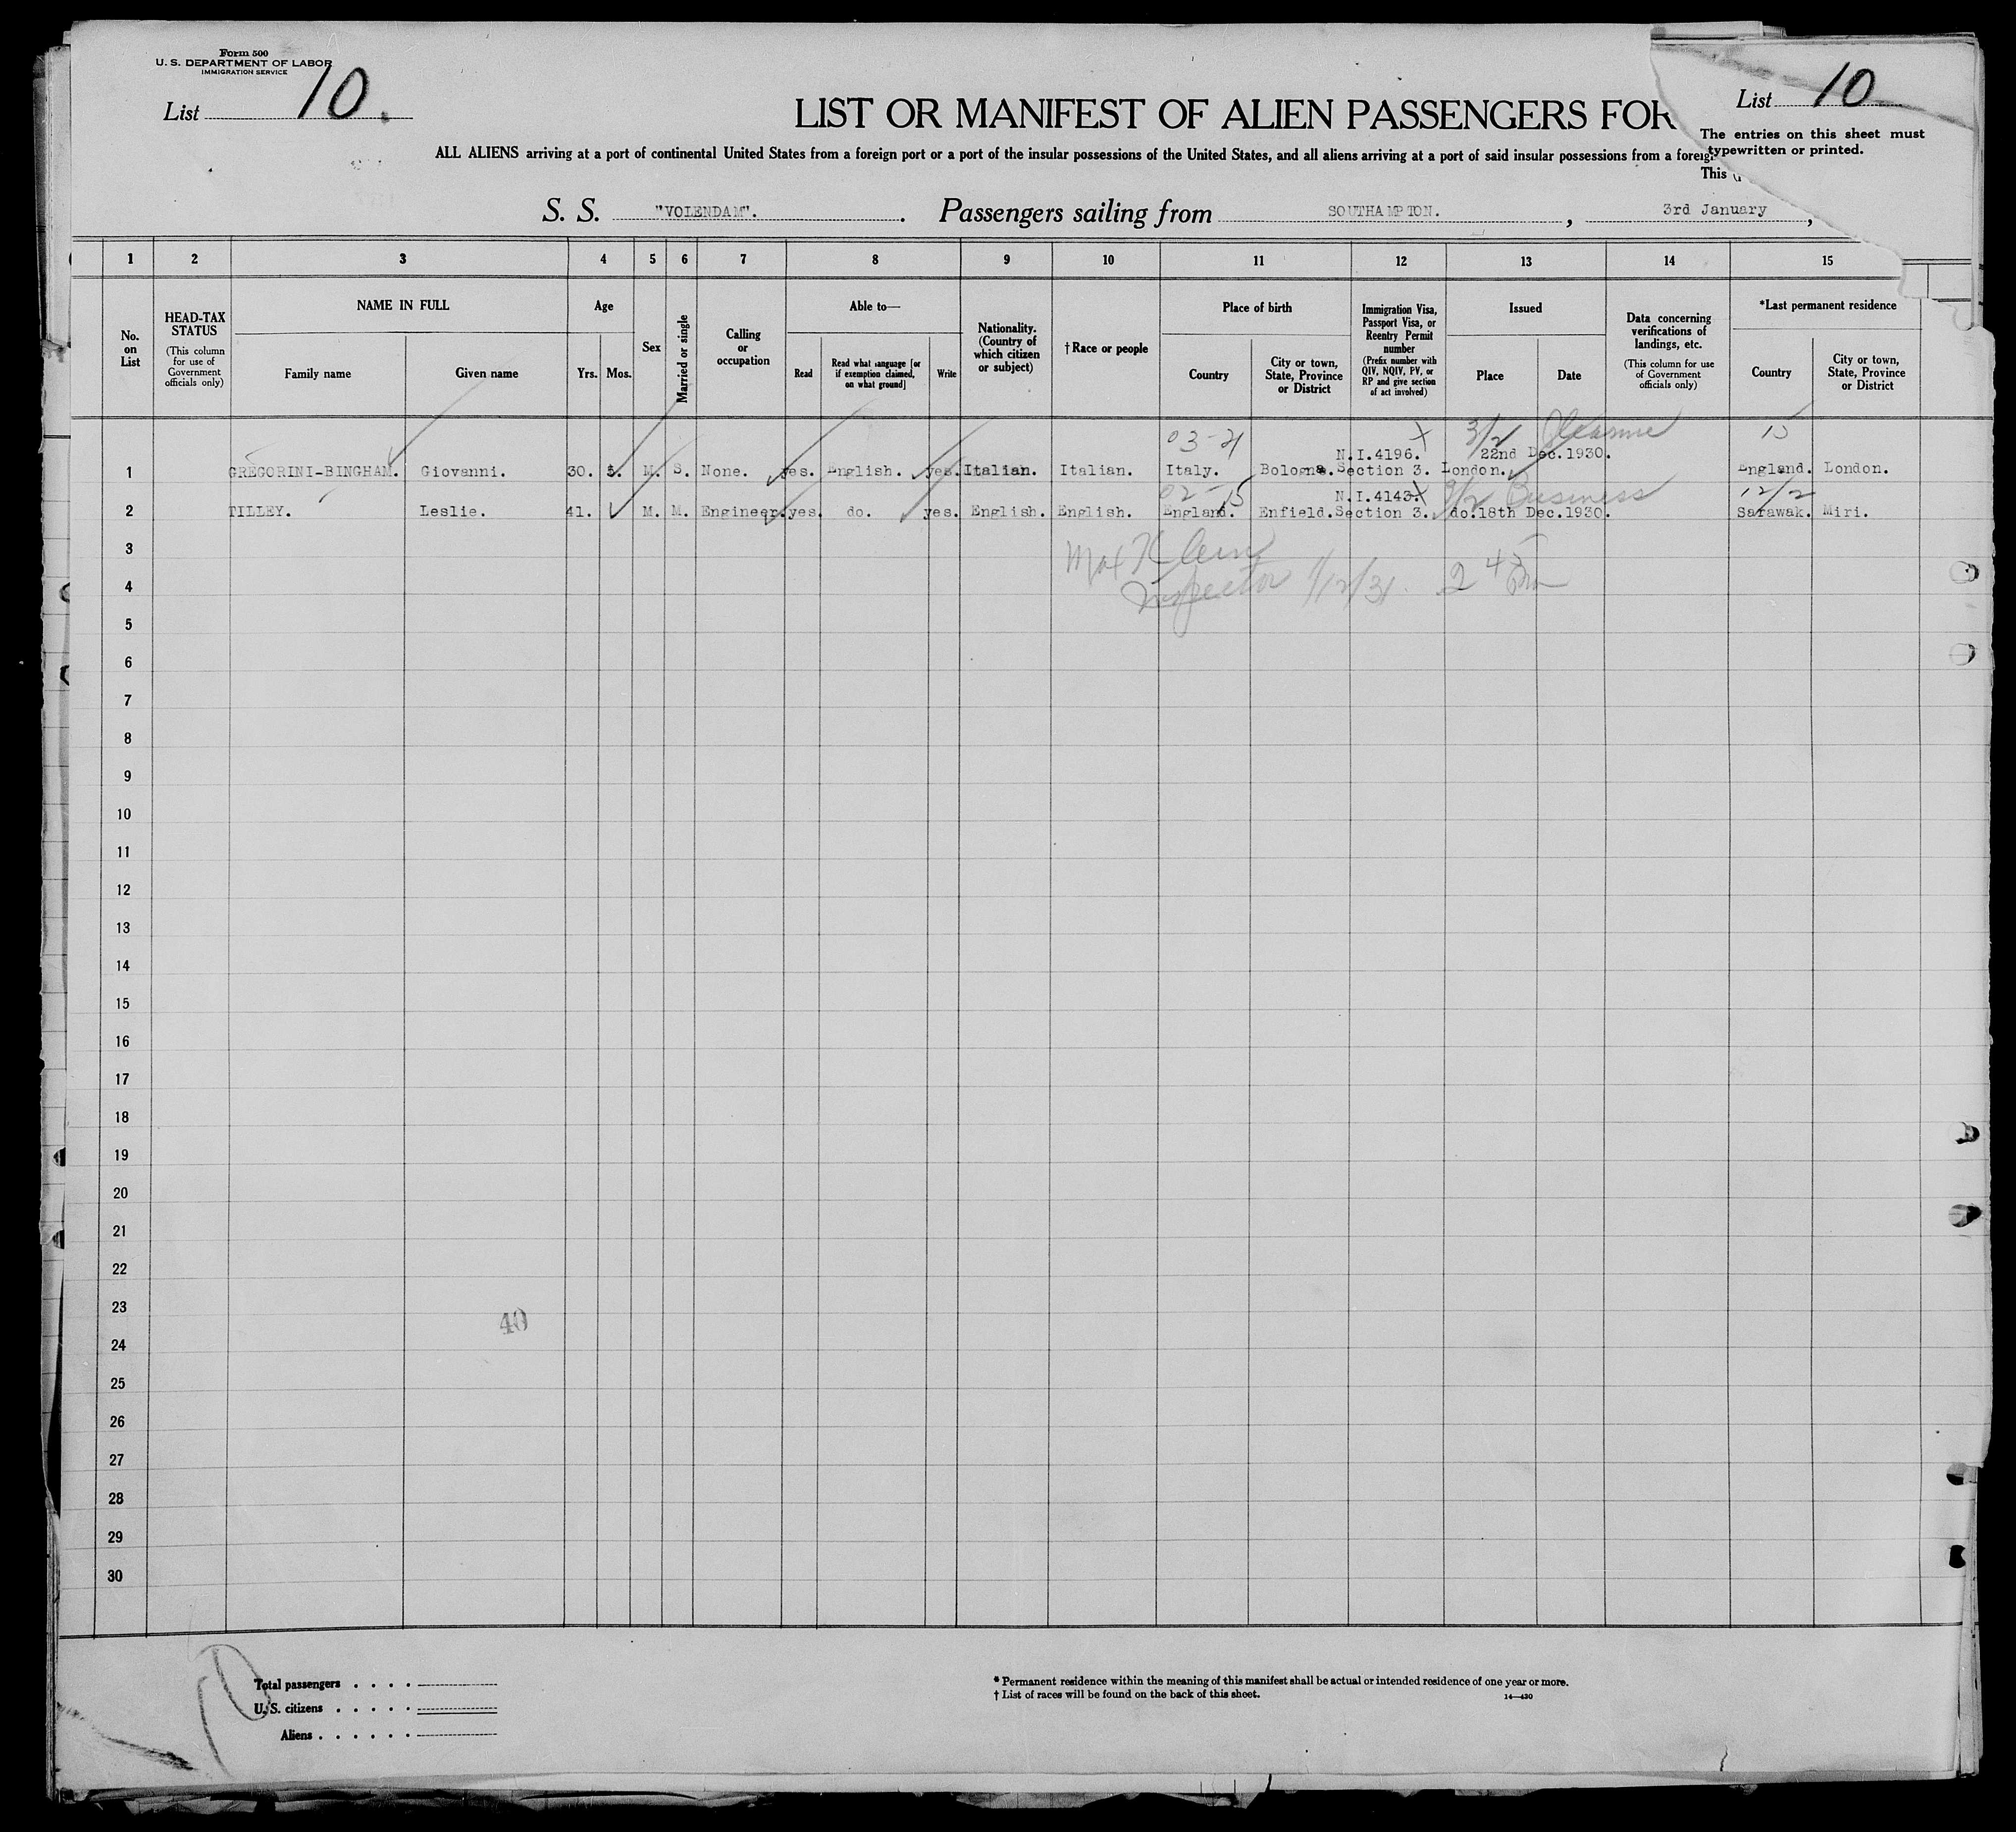 Form 500
U. S. DEPARTMENT OF LABOR
IMMIGRATION SERVICE
List 10.
List 10
LIST OR MANIFEST OF ALIEN PASSENGERS FOR
The entries on this sheet must
typewritten or printed.
ALL ALIENS arriving at a port of continental United States from a foreign port or a port of the insular possessions of the United States, and all aliens arriving at a port of said insular possessions from a foreig
This
S. S. "VOLENDAM". Passengers sailing from SOUTHAMPTON. , 3rd January ,
1 2 3 4 5 6 7 8 9 10 11 12 13 14 15
No. on List
HEAD-TAX STATUS
(This column for use of Government officials only)
NAME IN FULL
Family name
Given name
Age
Yrs. Mos.
Sex
Married or single
Calling or occupation
Able to—
Read
Read what language [or if exemption claimed, on what ground]
Write
Nationality. (Country of which citizen or subject)
†Race or people
Place of birth
Country
City or town, State, Province or District
Immigration Visa, Passport Visa, or Reentry Permit number
(Prefix number with QIV, NQIV, PV, or RP and give section of act involved)
Issued
Place
Date
Data concerning verifications of landings, etc.
(This column for use of Government officials only)
*Last permanent residence
Country
City or town, State, Province or District
03-21 3/2 15
N.I.4196. 22nd Dec.1930.
1 GREGORINI-BINGHAM. Giovanni. 30. M. S. None. yes. English. yes. Italian. Italian. Italy. Bologna. Section 3. London. England. London.
02-15 N.I.4143. 9/2 Business 12/2
2 TILLEY. Leslie. 41. M. M. Engineer. yes. do. yes. English. English. England. Enfield. Section 3. do. 18th Dec.1930. Sarawak. Miri.
3 Max Klein
4 Inspector 1/12/31. 2 45 Pm
5
6
7
8
9
10
11
12
13
14
15
16
17
18
19
20
21
22
23
40
24
25
26
27
28
29
30
10
Total passengers
U. S. citizens
Aliens
* Permanent residence within the meaning of this manifest shall be actual or intended residence of one year or more.
† List of races will be found on the back of this sheet. 14—430